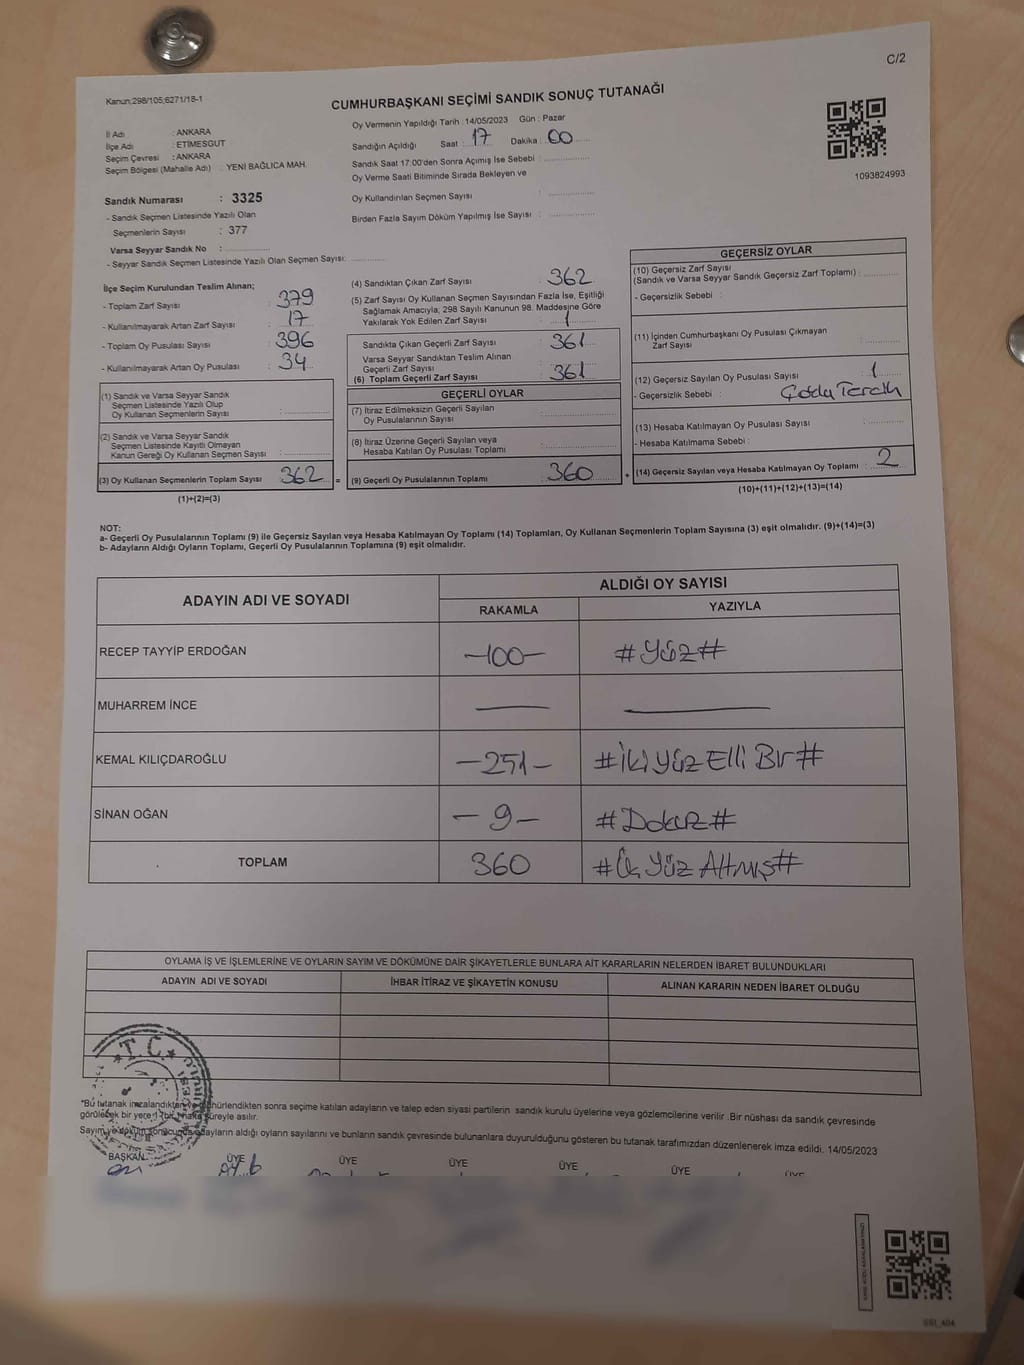 C/2
Kanun;298/105;6271/18-1
CUMHURBAŞKANI SEÇİMİ SANDIK SONUÇ TUTANAĞI
İl Adı : ANKARA
İlçe Adı : ETİMESGUT
Seçim Çevresi : ANKARA
Seçim Bölgesi (Mahalle Adı) : YENİ BAĞLICA MAH.
Oy Vermenin Yapıldığı Tarih : 14/05/2023 Gün : Pazar
Sandığın Açıldığı Saat : 17 Dakika : 00
Sandık Saat 17:00'den Sonra Açımış İse Sebebi :
Oy Verme Saati Bitiminde Sırada Bekleyen ve
Oy Kullandırılan Seçmen Sayısı :
Birden Fazla Sayım Döküm Yapılmış İse Sayısı :
1093824993
Sandık Numarası : 3325
- Sandık Seçmen Listesinde Yazılı Olan
Seçmenlerin Sayısı : 377
Varsa Seyyar Sandık No :
- Seyyar Sandık Seçmen Listesinde Yazılı Olan Seçmen Sayısı:
İlçe Seçim Kurulundan Teslim Alınan;
- Toplam Zarf Sayısı : 379
- Kullanılmayarak Artan Zarf Sayısı : 17
- Toplam Oy Pusulası Sayısı : 396
- Kullanılmayarak Artan Oy Pusulası : 34
(1) Sandık ve Varsa Seyyar Sandık
Seçmen Listesinde Yazılı Olup
Oy Kullanan Seçmenlerin Sayısı :
(2) Sandık ve Varsa Seyyar Sandık
Seçmen Listesinde Kayıtlı Olmayan
Kanun Gereği Oy Kullanan Seçmen Sayısı :
(3) Oy Kullanan Seçmenlerin Toplam Sayısı : 362 =
(1)+(2)=(3)
(4) Sandıktan Çıkan Zarf Sayısı : 362
(5) Zarf Sayısı Oy Kullanan Seçmen Sayısından Fazla İse, Eşitliği
Sağlamak Amacıyla, 298 Sayılı Kanunun 98. Maddesine Göre
Yakılarak Yok Edilen Zarf Sayısı : 1
Sandıkta Çıkan Geçerli Zarf Sayısı : 361
Varsa Seyyar Sandıktan Teslim Alınan
Geçerli Zarf Sayısı :
(6) Toplam Geçerli Zarf Sayısı 361
GEÇERLİ OYLAR
(7) İtiraz Edilmeksizin Geçerli Sayılan
Oy Pusulalarının Sayısı :
(8) İtiraz Üzerine Geçerli Sayılan veya
Hesaba Katılan Oy Pusulaları Toplamı :
(9) Geçerli Oy Pusulalarının Toplamı : 360 +
GEÇERSİZ OYLAR
(10) Geçersiz Zarf Sayısı
(Sandık ve Varsa Seyyar Sandık Geçersiz Zarf Toplamı) :
- Geçersizlik Sebebi :
(11) İçinden Cumhurbaşkanı Oy Pusulası Çıkmayan
Zarf Sayısı :
(12) Geçersiz Sayılan Oy Pusulası Sayısı : 1
- Geçersizlik Sebebi :
(13) Hesaba Katılmayan Oy Pusulası Sayısı :
- Hesaba Katılmama Sebebi :
(14) Geçersiz Sayılan veya Hesaba Katılmayan Oy Toplamı : 2
(10)+(11)+(12)+(13)=(14)
NOT:
a- Geçerli Oy Pusulalarının Toplamı (9) ile Geçersiz Sayılan veya Hesaba Katılmayan Oy Toplamı (14) Toplamları, Oy Kullanan Seçmenlerin Toplam Sayısına (3) eşit olmalıdır. (9)+(14)=(3)
b- Adayların Aldığı Oyların Toplamı, Geçerli Oy Pusulalarının Toplamına (9) eşit olmalıdır.
ADAYIN ADI VE SOYADI ALDIĞI OY SAYISI
RAKAMLA YAZIYLA
RECEP TAYYİP ERDOĞAN -100- #Yüz#
MUHARREM İNCE
KEMAL KILIÇDAROĞLU -251- #İki Yüz Elli Bir#
SİNAN OĞAN -9- #Dokuz#
TOPLAM 360 #Üç Yüz Altmış#
OYLAMA İŞ VE İŞLEMLERİNE VE OYLARIN SAYIM VE DÖKÜMÜNE DAİR ŞİKAYETLERLE BUNLARA AİT KARARLARIN NELERDEN İBARET BULUNDUKLARI
ADAYIN ADI VE SOYADI İHBAR İTİRAZ VE ŞİKAYETİN KONUSU ALINAN KARARIN NEDEN İBARET OLDUĞU
T.C.
"Bu tutanak imzalandıktan ve mühürlendikten sonra seçime katılan adayların ve talep eden siyasi partilerin sandık kurulu üyelerine veya gözlemcilerine verilir. Bir nüshası da sandık çevresinde
görülecek bir yere 1 bir hafta süreyle asılır.
Sayım ve döküm sonucunda adayların aldığı oyların sayılarını ve bunların sandık çevresinde bulunanlara duyurulduğunu gösteren bu tutanak tarafımızdan düzenlenerek imza edildi. 14/05/2023
BAŞKAN ÜYE ÜYE ÜYE ÜYE ÜYE ÜYE